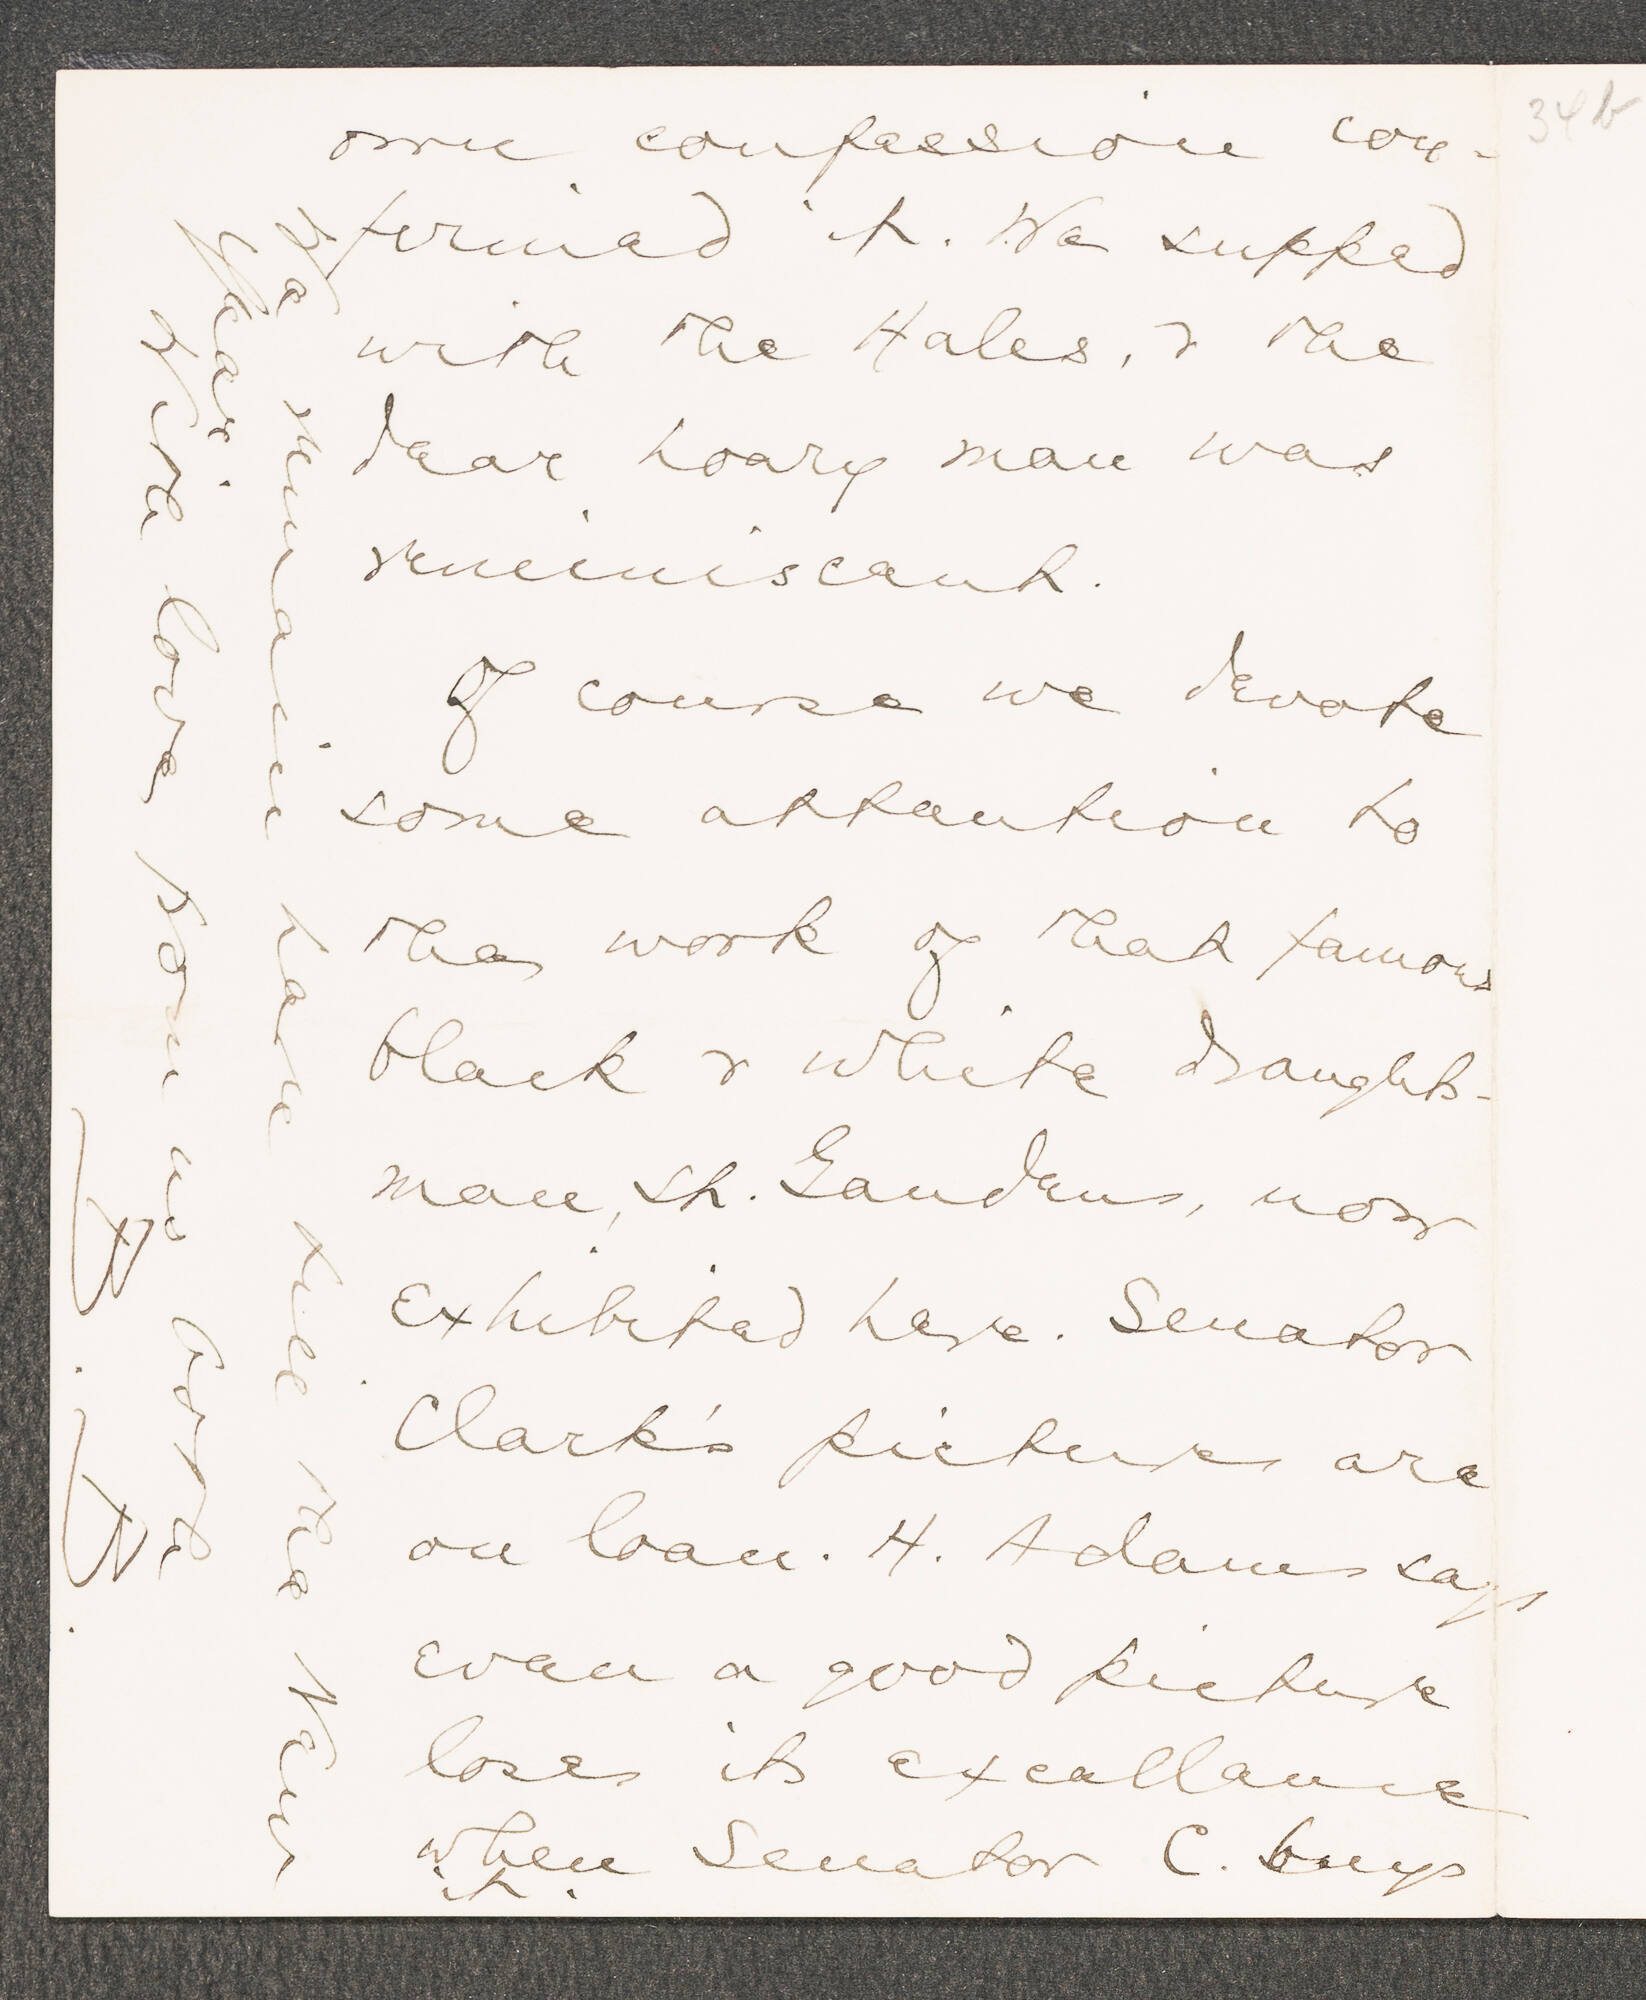 34b
own confession con-
firmed it. We supped
with the Hales, & the
dear hoary man was
reminiscent.
Of course we devote
some attention to
the work of that famous
black & white draughts-
man, St. Gaudens, now
exhibited here. Senator
Clark's pictures are
on loan. H. Adams says
even a good picture
loses its excellence
when Senator C. buys
it.
We remain here till the New
Year.
With love from us both